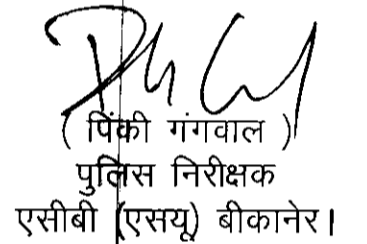 ( पिंकी गंगवाल )
पुलिस निरीक्षक
एसीबी (एसयू) बीकानेर।